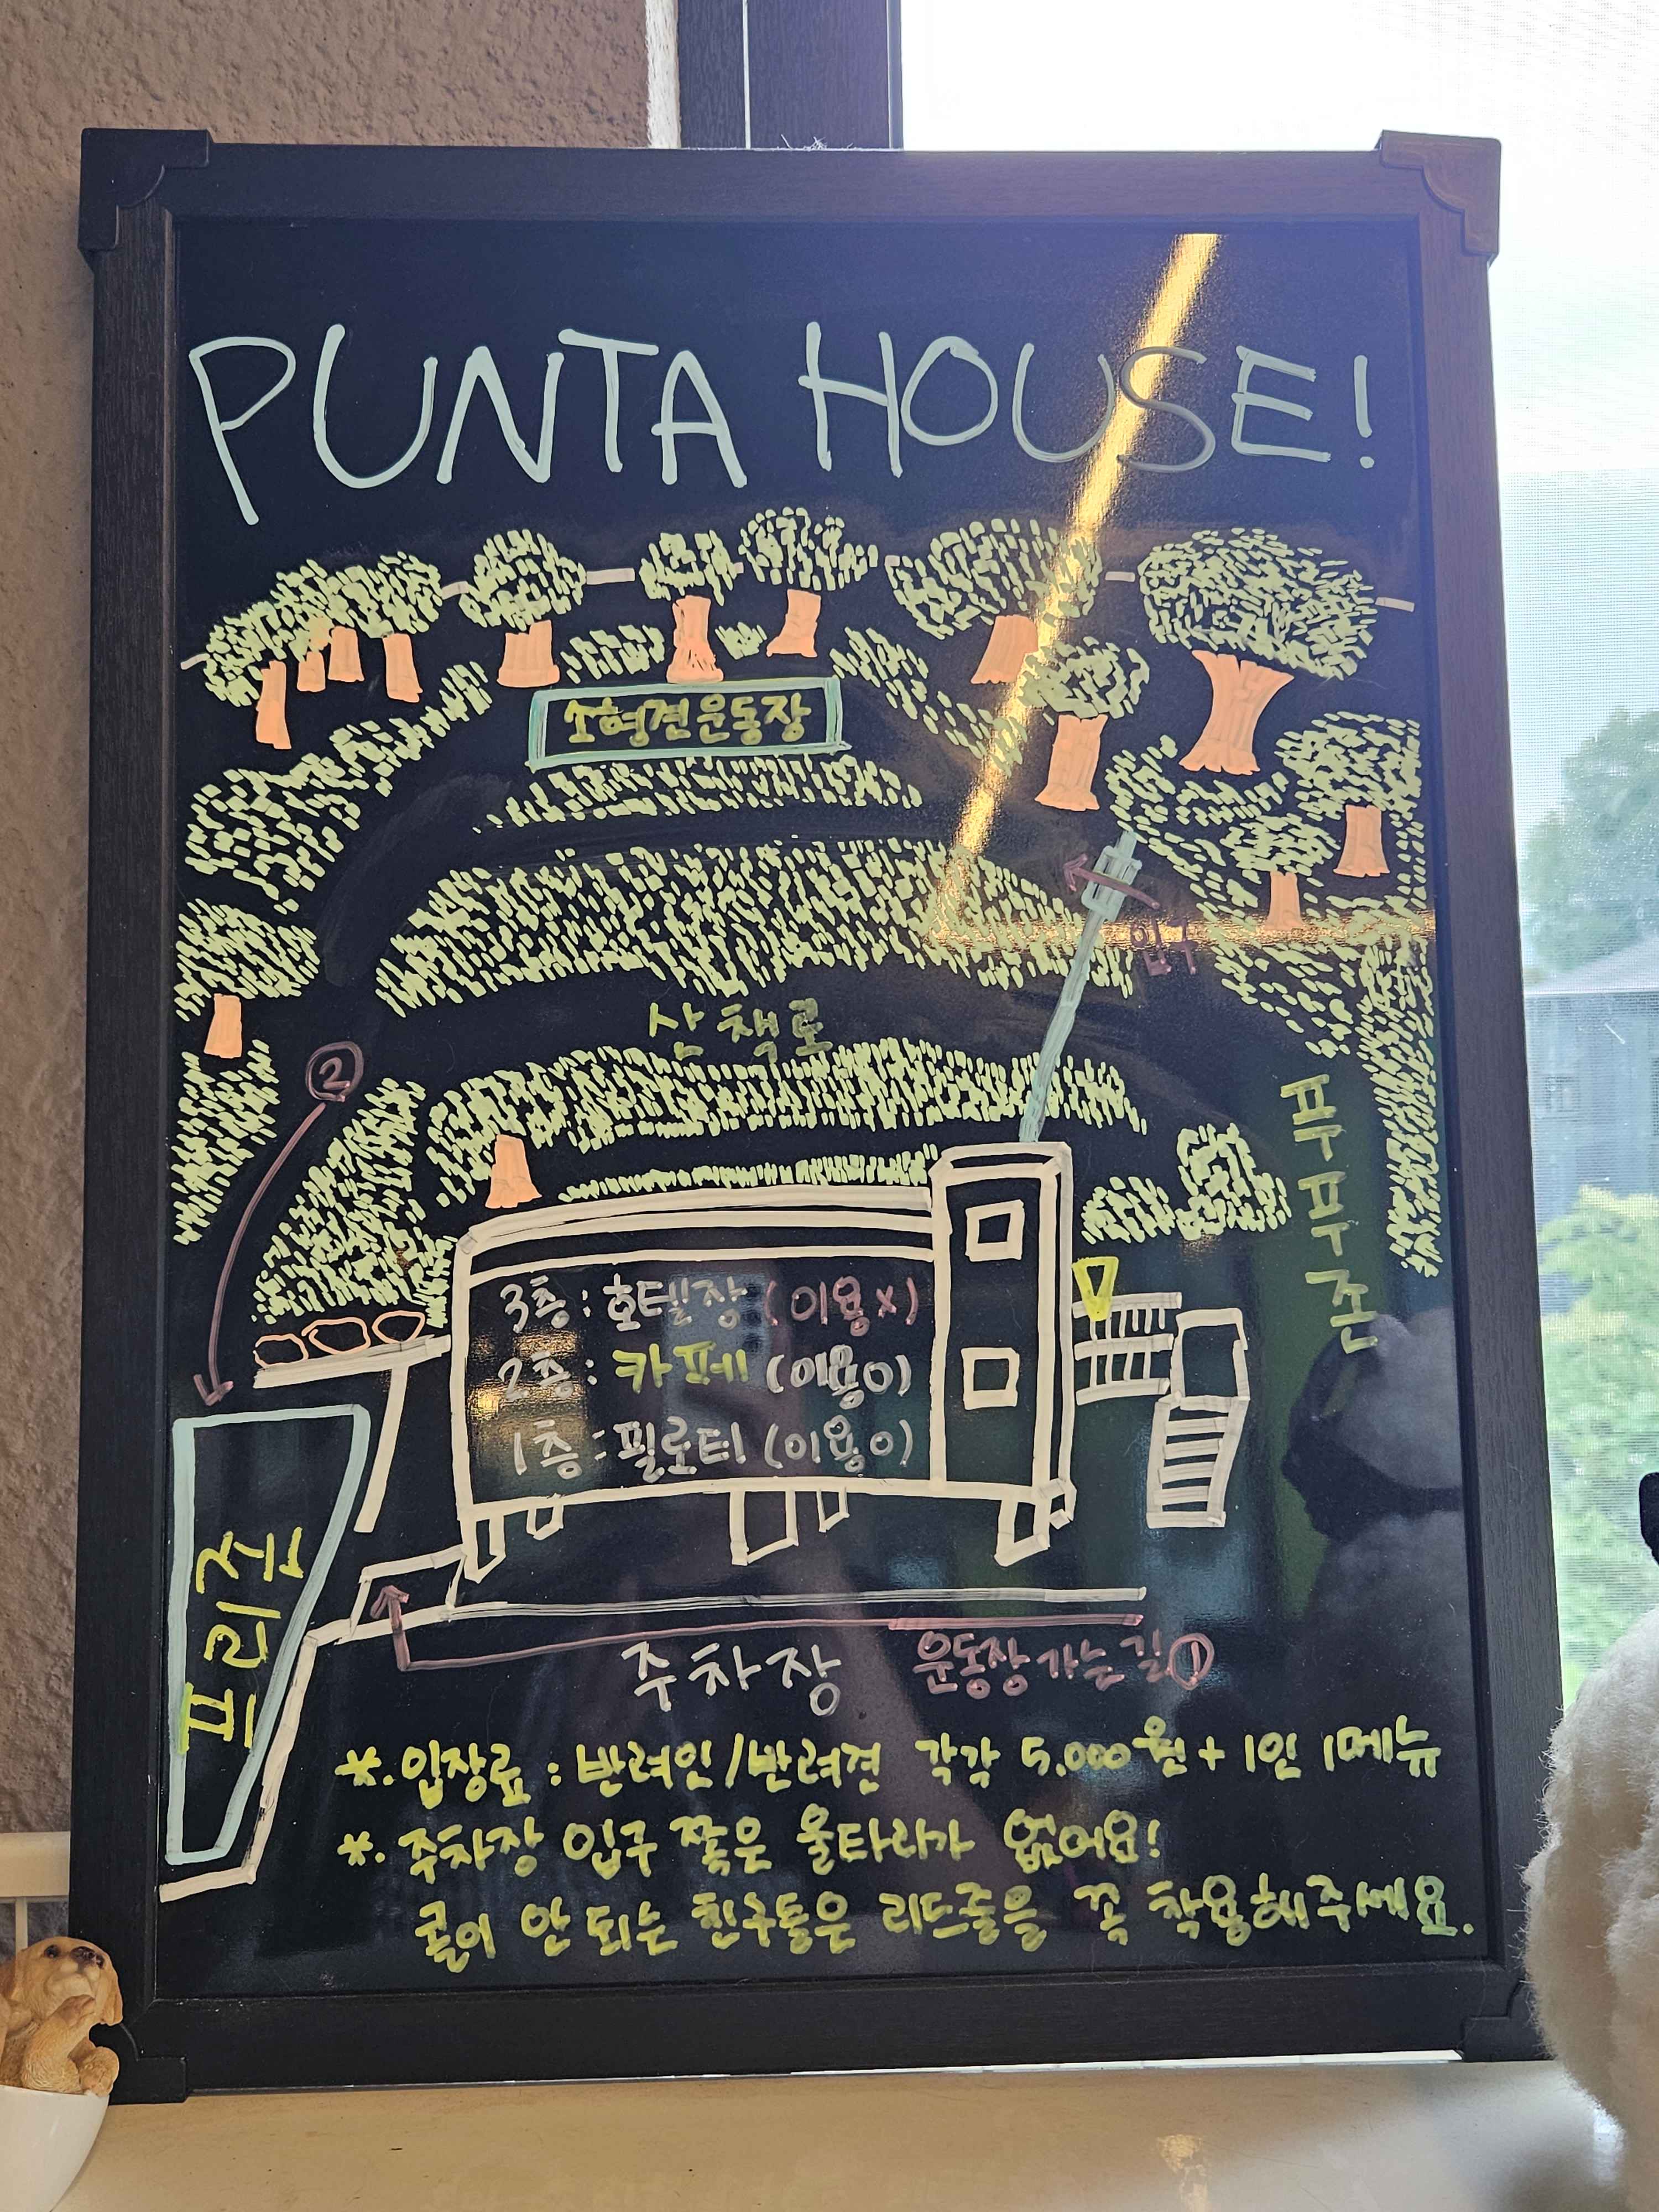 PUNTA HOUSE!
소형견운동장
입구
산책로
푸푸존
②
3층 : 호텔장 (이용x)
2층 : 카페 (이용o)
1층 : 필로티 (이용o)
프리존
주차장
운동장 가는 길①
*. 입장료 : 반려인/반려견 각각 5,000원 + 1인 1메뉴
*. 주차장 입구 쪽은 울타리가 없어요!
콜이 안 되는 친구들은 리드줄을 꼭 착용해주세요.